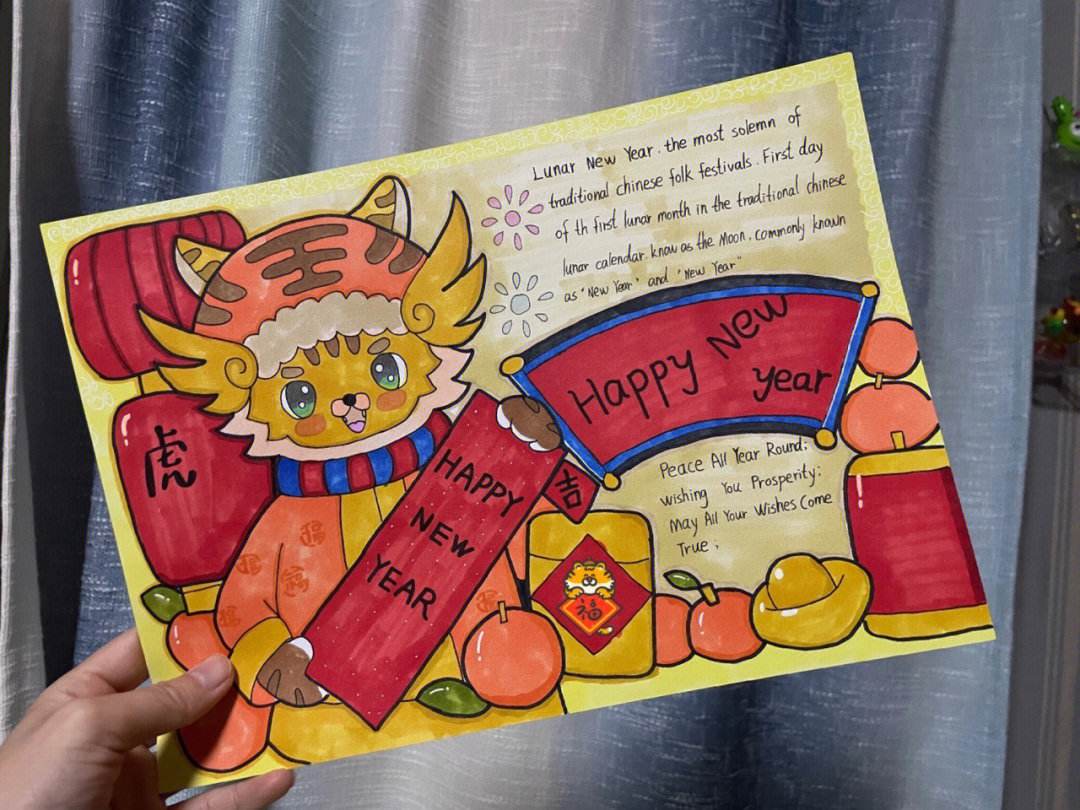 Lunar New Year. the most solemn of
traditional chinese folk festivals. First day
of th first lunar month in the traditional chinese
lunar calendar. know as the Moon. commonly known
as "New Year" and "New Year"
Happy New
year
虎
HAPPY
NEW
YEAR
吉
Peace All Year Round;
wishing You Prosperity;
May All Your Wishes Come
True;
福